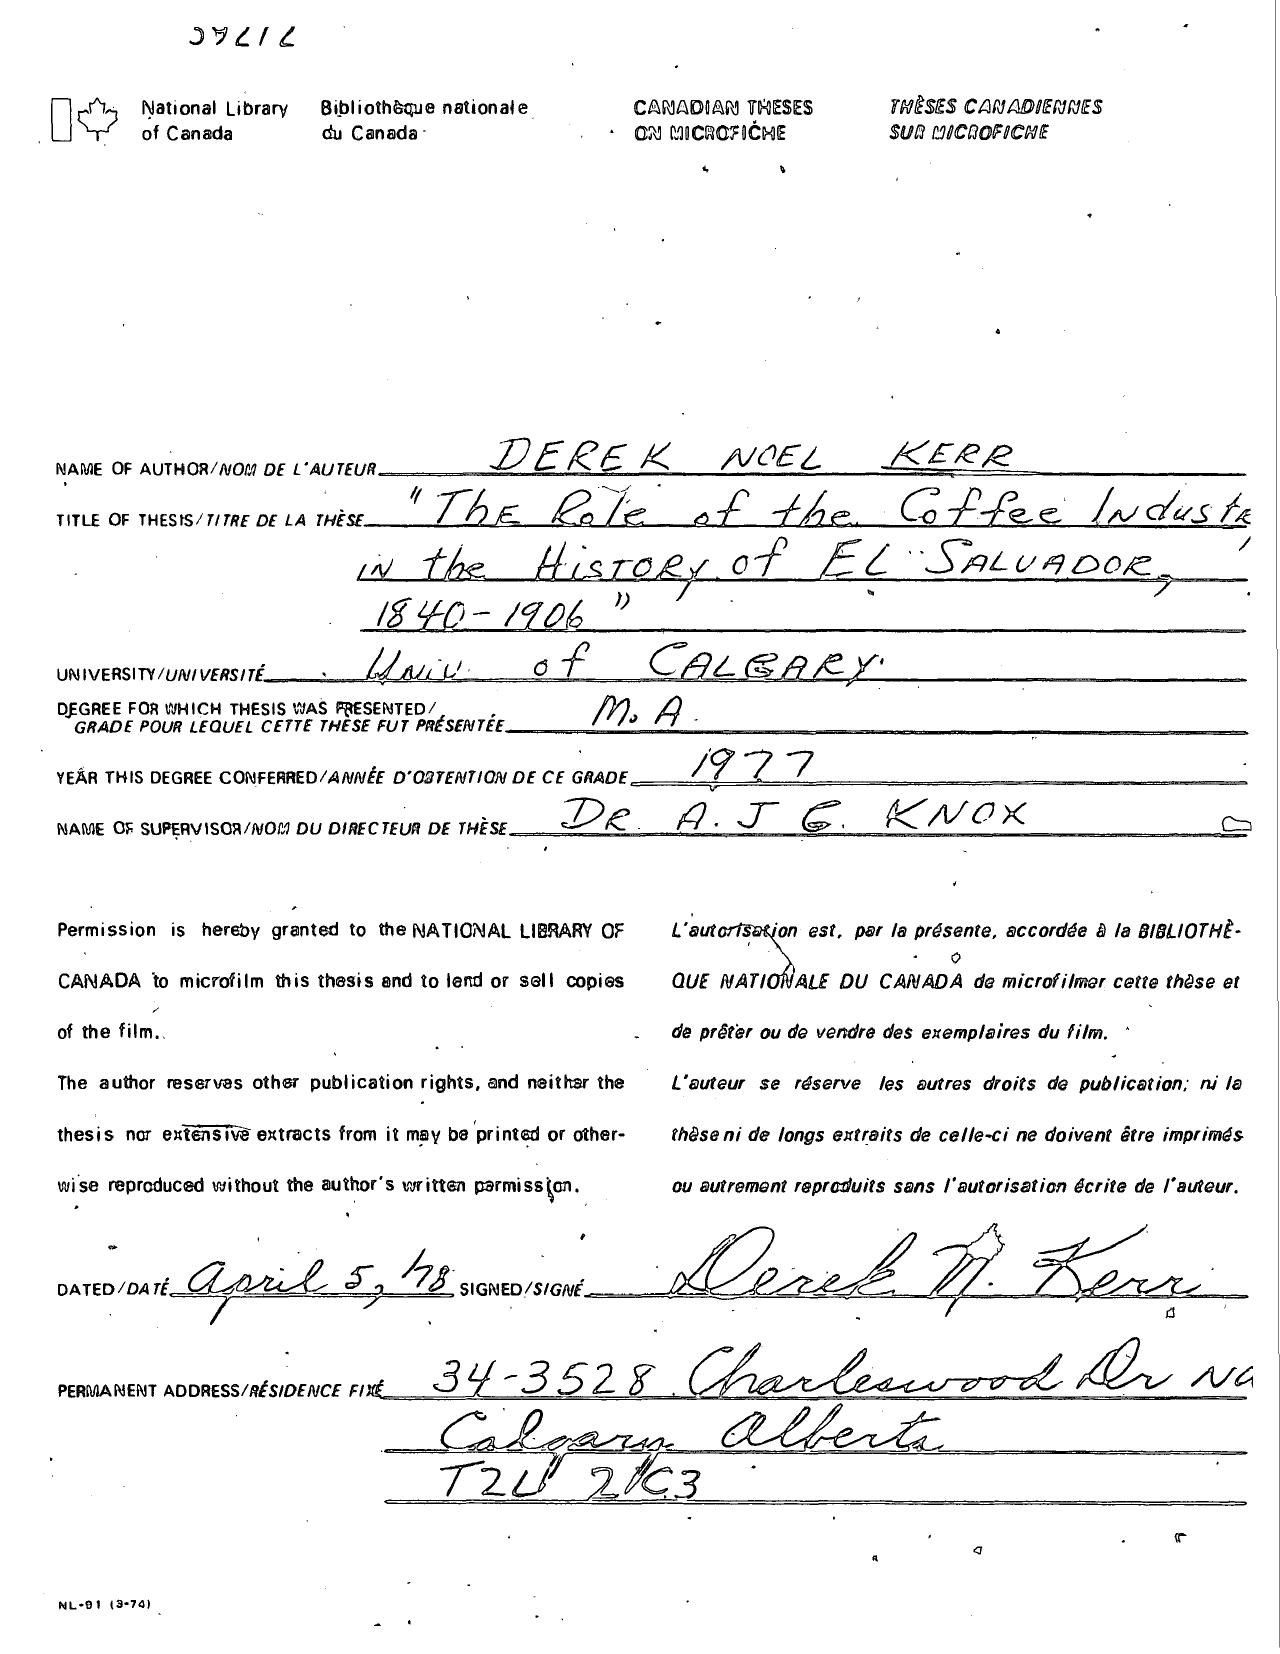 National Library of Canada
Bibliothèque nationale du Canada
CANADIAN THESES ON MICROFICHE
THÈSES CANADIENNES SUR MICROFICHE
NAME OF AUTHOR/NOM DE L'AUTEUR DEREK NOEL KERR
TITLE OF THESIS/TITRE DE LA THÈSE "The Role of the Coffee Industr
in the History of EL SALVADOR,
1840-1906"
UNIVERSITY/UNIVERSITÉ Univ. of CALGARY
DEGREE FOR WHICH THESIS WAS PRESENTED/
GRADE POUR LEQUEL CETTE THÈSE FUT PRÉSENTÉE M.A.
YEAR THIS DEGREE CONFERRED/ANNÉE D'OBTENTION DE CE GRADE 1977
NAME OF SUPERVISOR/NOM DU DIRECTEUR DE THÈSE DR. A. J G. KNOX
Permission is hereby granted to the NATIONAL LIBRARY OF
CANADA to microfilm this thesis and to lend or sell copies
of the film.
The author reserves other publication rights, and neither the
thesis nor extensive extracts from it may be printed or other-
wise reproduced without the author's written permission.
L'autorisation est, par la présente, accordée à la BIBLIOTHÈ-
QUE NATIONALE DU CANADA de microfilmer cette thèse et
de prêter ou de vendre des exemplaires du film.
L'auteur se réserve les autres droits de publication; ni la
thèse ni de longs extraits de celle-ci ne doivent être imprimés
ou autrement reproduits sans l'autorisation écrite de l'auteur.
DATED/DATÉ April 5, '78 SIGNED/SIGNÉ Derek N. Kerr
PERMANENT ADDRESS/RÉSIDENCE FIXÉ 34-3528 Charleswood Dr
Calgary Alberta
T2L 2C3
NL-91 (3-74)